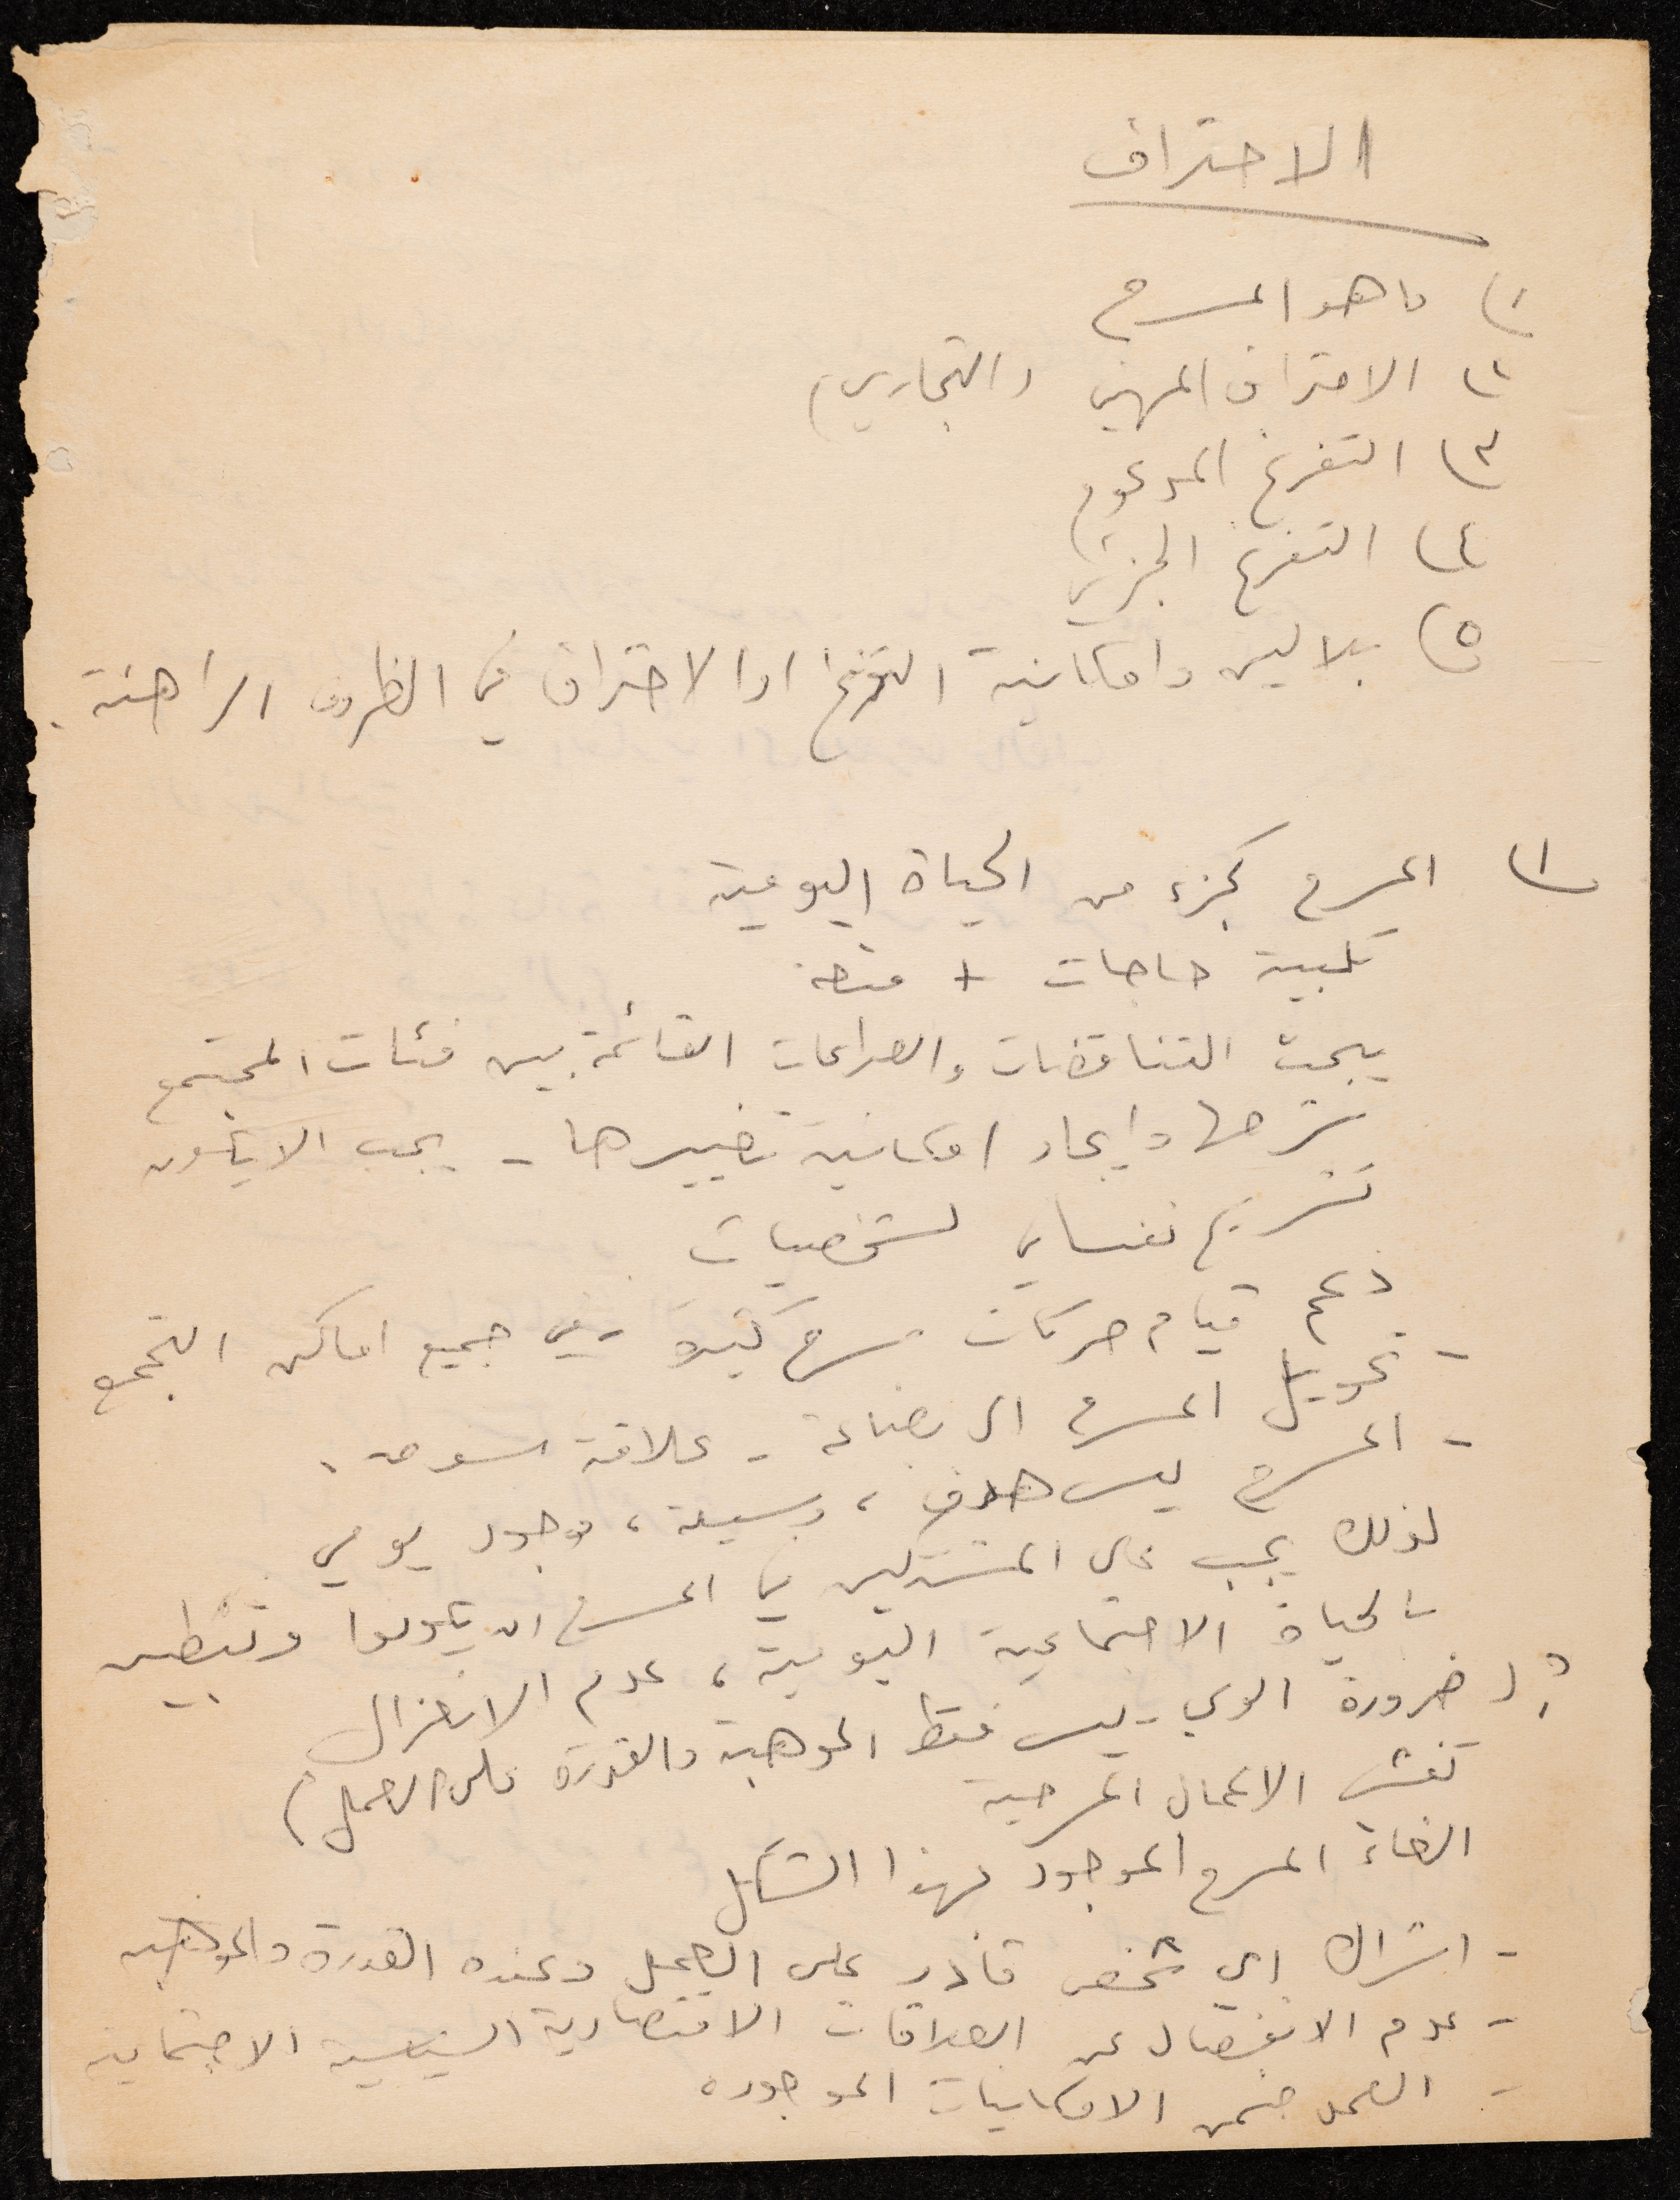 الاحتراف
١) ما هو المسرح
٢) الاحتراف المهني (التجاري)
٣) التفرغ المدعوم
٤) التفرغ الجزئي
٥) بلالين وامكانية التفرغ او الاحتراف في الظروف الراهنة.
١) المسرح كجزء من الحياة اليومية
تلبية حاجات + متعة
يبحث التناقضات والصراعات القائمة بين فئات المجتمع
شرحها وايجاد امكانية تغييرها - يجب الا يكون
تشريح نفساني لشخصيات
دعم قيام حركات مسرح كثيرة في جميع اماكن التجمع
- تحويل المسرح الى بضاعة - علاقة السوق.
- المسرح ليس هدف، وسيلة، وجود يومي
لذلك يجب على المشتركين في المسرح ان يكونوا مرتبطين
بالحياة الاجتماعية اليومية، عدم الانعزال
(ضرورة الوعي - ليس فقط الموهبة والقدرة على العمل)
الاعمال المسرحية
الغاء المسرح الموجود بهذا الشكل
- اشراك اي شخص قادر على العمل وعنده القدرة والموهبه
- عدم الانفصال عن العلاقات الاقتصادية السياسية الاجتماعية
- العمل ضمن الامكانيات الموجوده